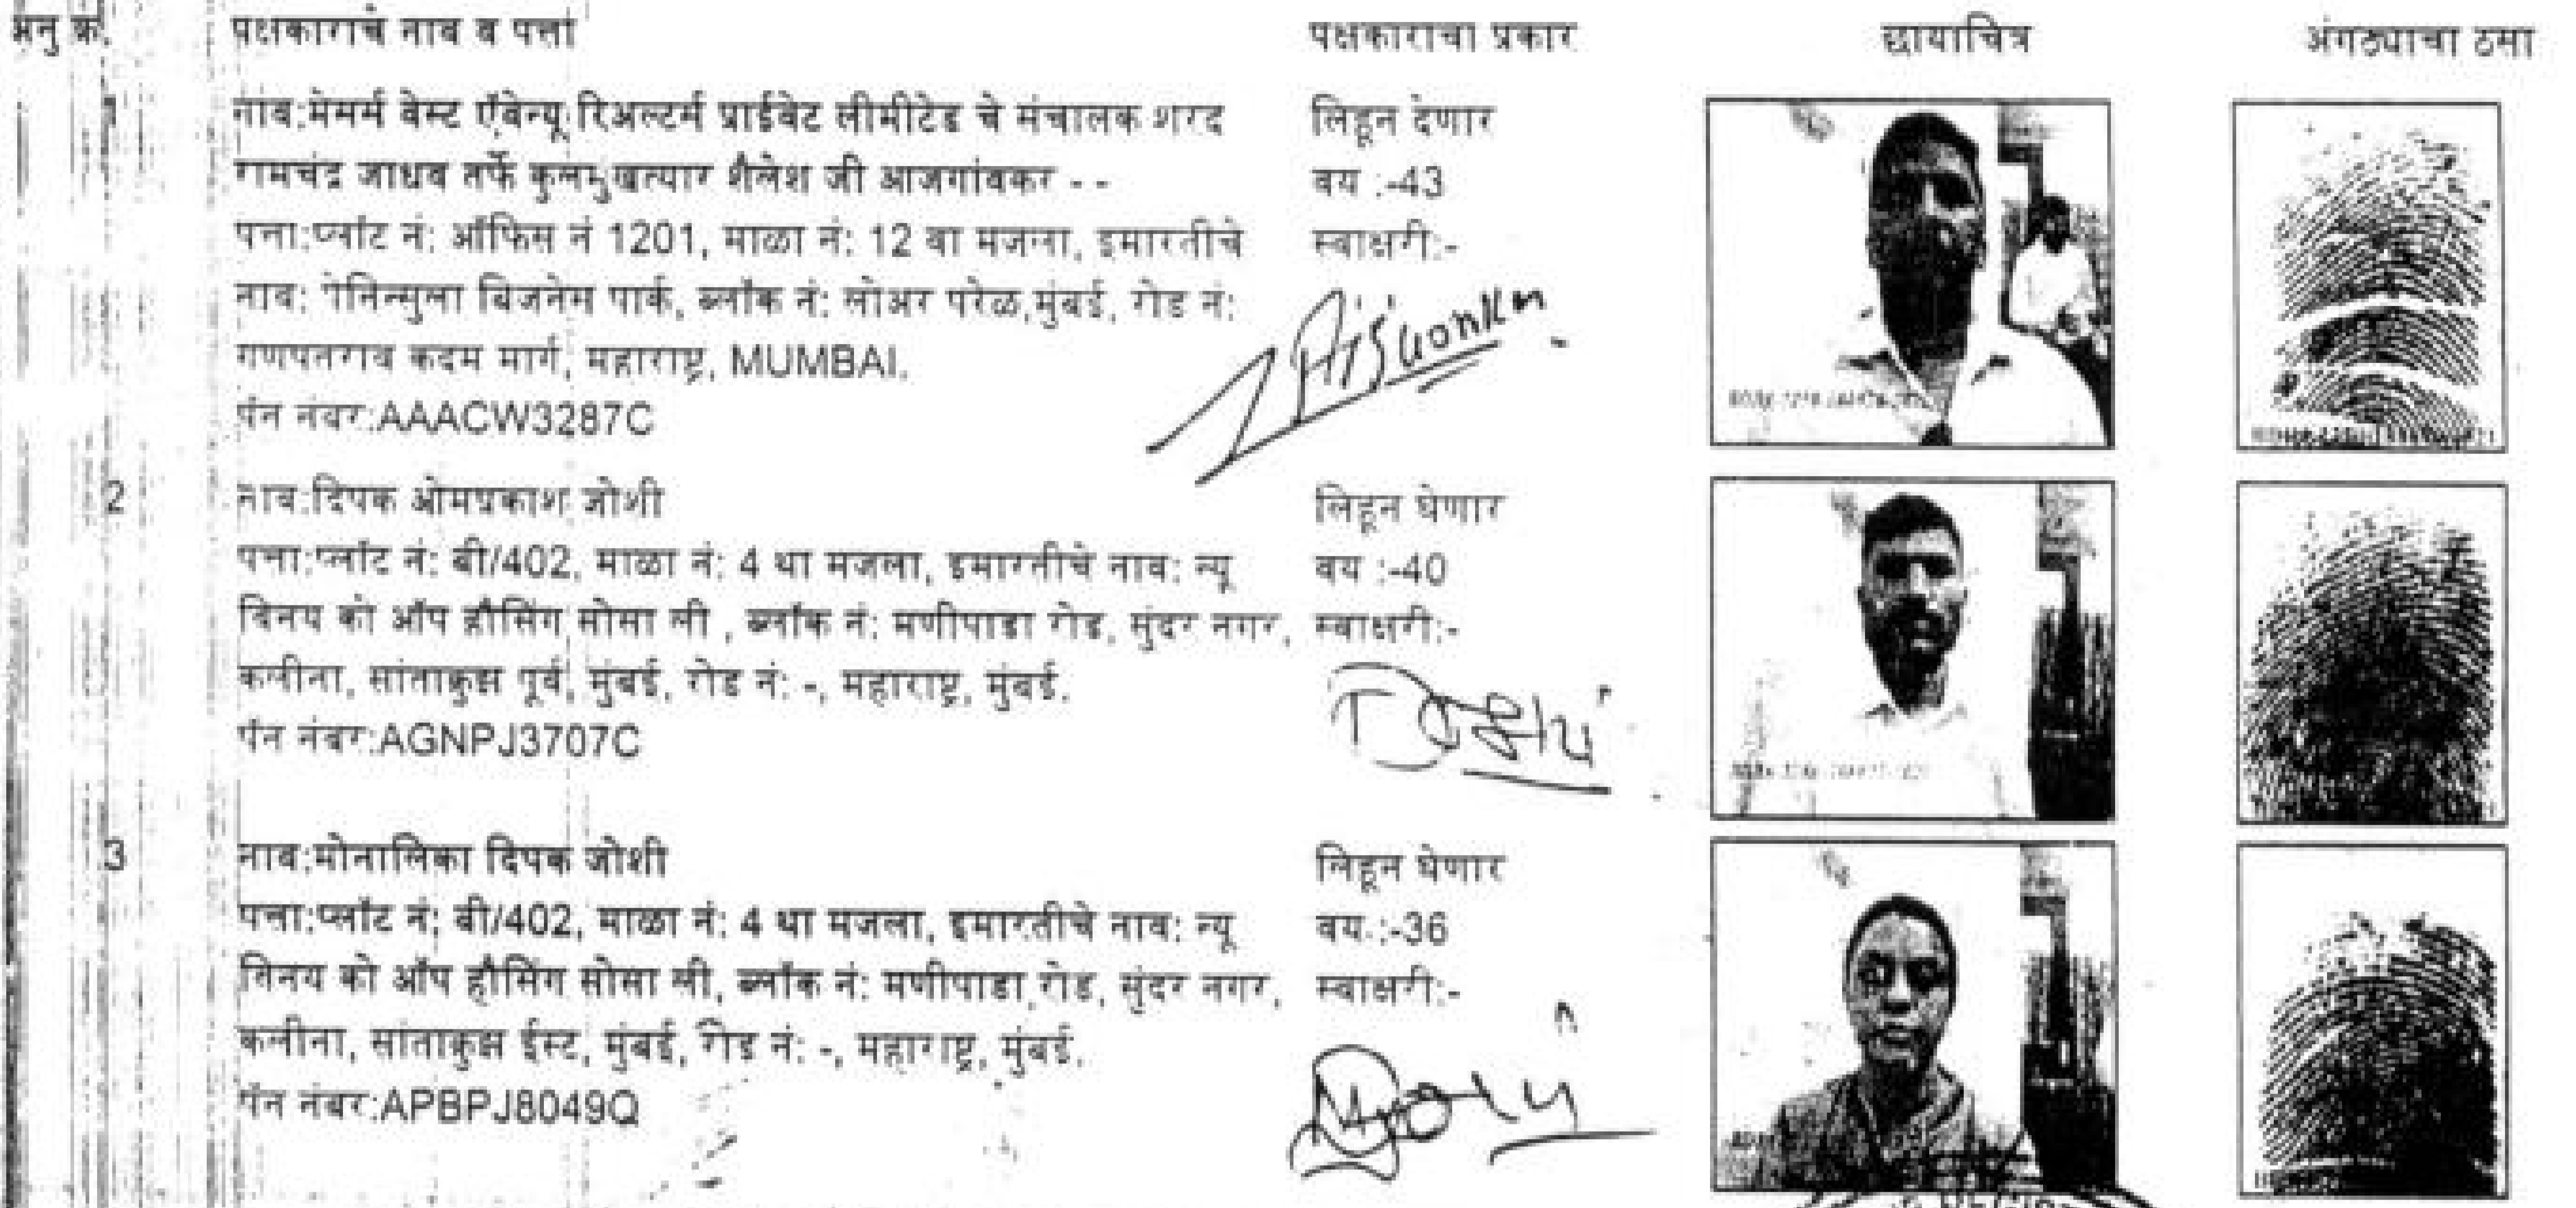 अनु क्र. पक्षकाराचे नाव व पत्ता पक्षकाराचा प्रकार छायाचित्र अंगठ्याचा ठसा
1 नाव:मेसर्स वेस्ट ऍवेन्यू रिअल्टर्स प्राईवेट लीमीटेड चे संचालक शरद लिहून देणार
रामचंद्र जाधव तर्फे कुलमुखत्यार शैलेश जी आजगांवकर - - वय :-43
पत्ता:प्लॉट नं: ऑफिस नं 1201, माळा नं: 12 वा मजला, इमारतीचे स्वाक्षरी:-
नाव: पेनिन्सुला बिजनेस पार्क, ब्लॉक नं: लोअर परेळ,मुंबई, रोड नं:
गणपतराव कदम मार्ग, महाराष्ट्र, MUMBAI.
पॅन नंबर:AAACW3287C
2 नाव:दिपक ओमप्रकाश जोशी लिहून घेणार
पत्ता:प्लॉट नं: बी/402, माळा नं: 4 था मजला, इमारतीचे नाव: न्यू वय :-40
विनय को ऑप हौसिंग सोसा ली , ब्लॉक नं: मणीपाडा रोड, सुंदर नगर, स्वाक्षरी:-
कलीना, सांताक्रुझ पूर्व, मुंबई, रोड नं: -, महाराष्ट्र, मुंबई.
पॅन नंबर:AGNPJ3707C
3 नाव:मोनालिका दिपक जोशी लिहून घेणार
पत्ता:प्लॉट नं: बी/402, माळा नं: 4 था मजला, इमारतीचे नाव: न्यू वय :-36
विनय को ऑप हौसिंग सोसा ली, ब्लॉक नं: मणीपाडा रोड, सुंदर नगर, स्वाक्षरी:-
कलीना, सांताक्रुझ ईस्ट, मुंबई, रोड नं: -, महाराष्ट्र, मुंबई.
पॅन नंबर:APBPJ8049Q